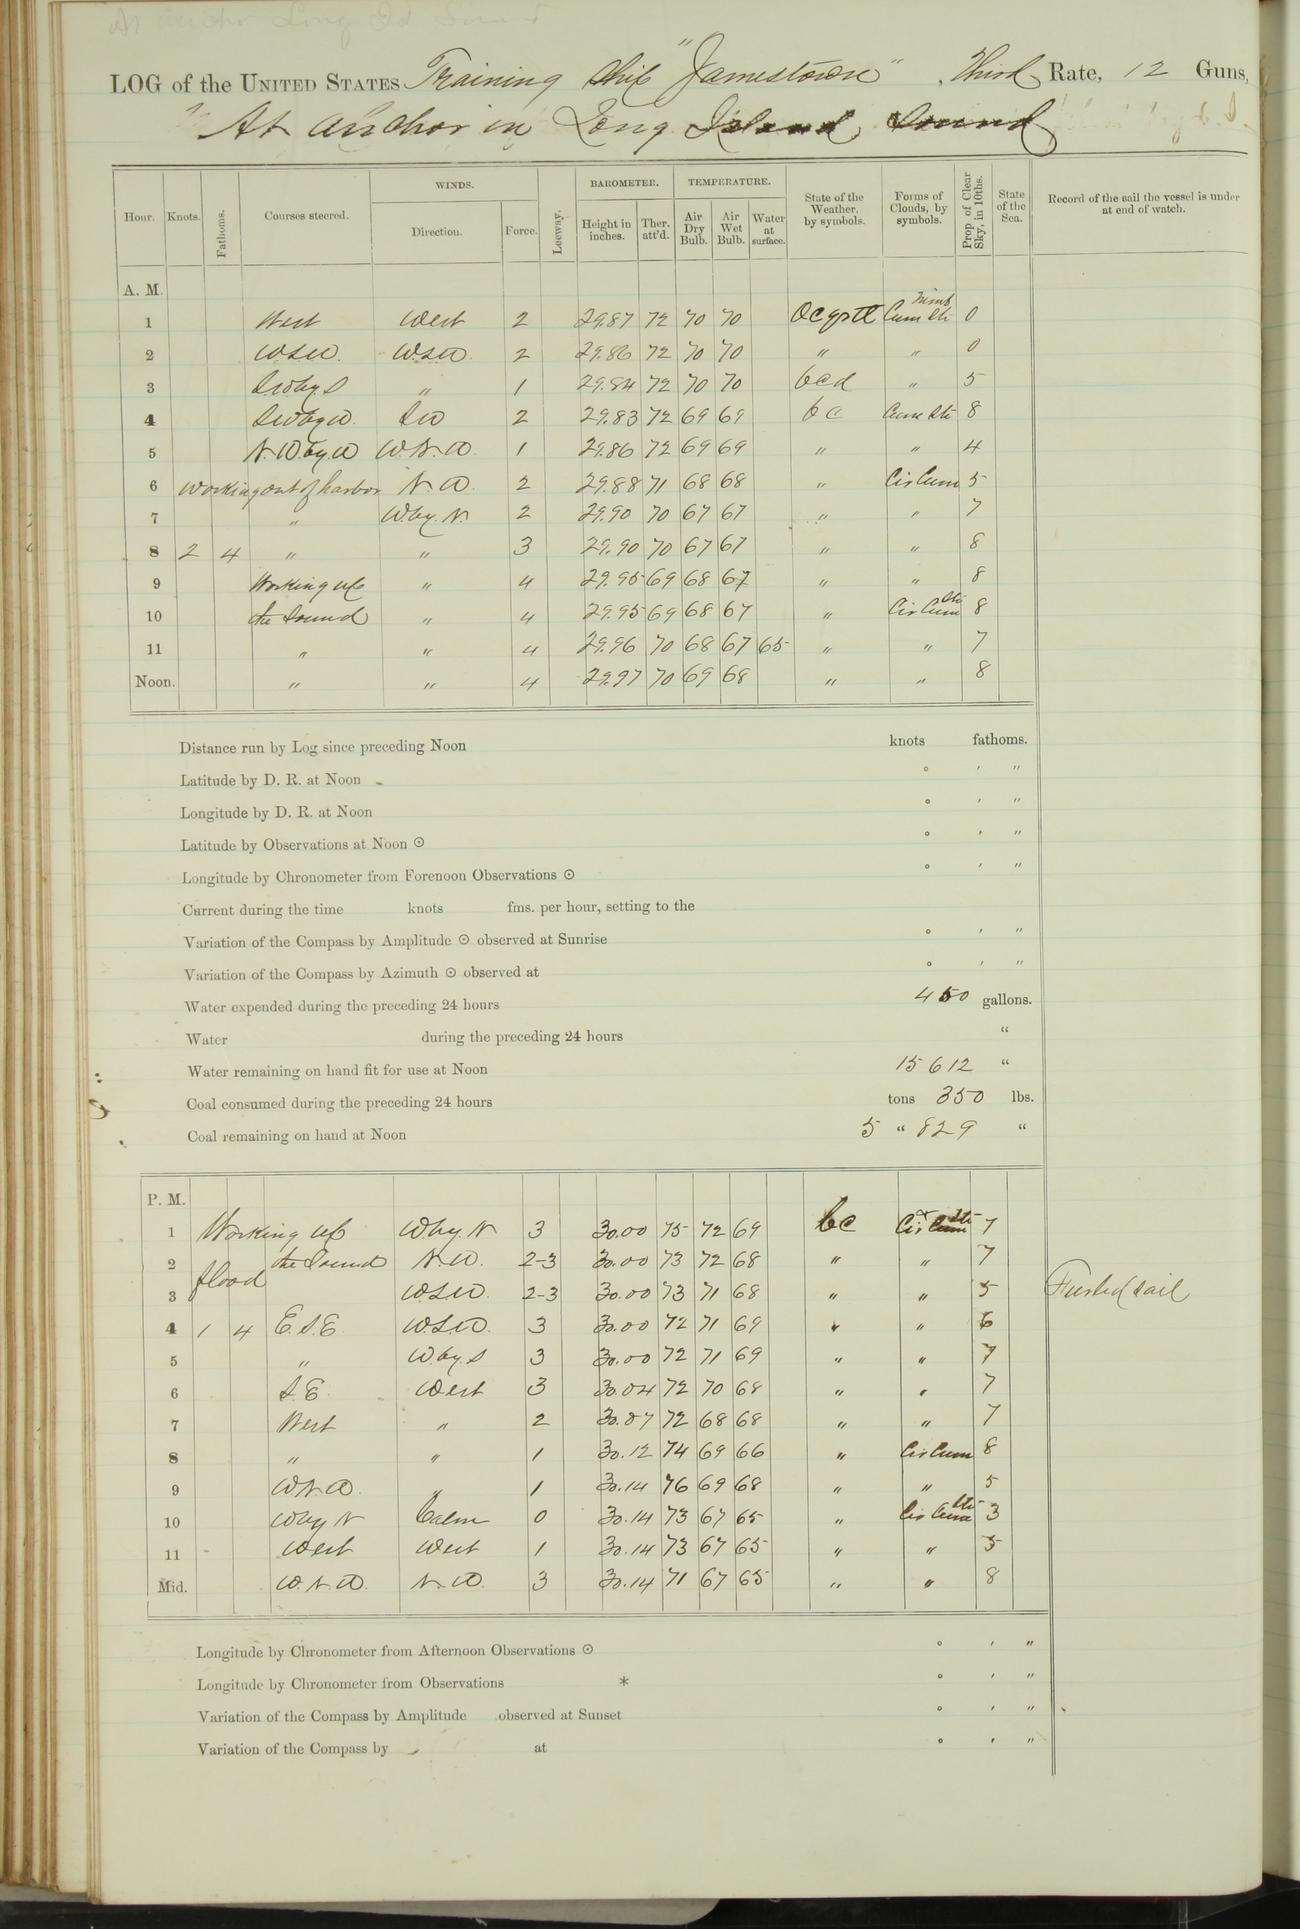 At anchor Long Id Sound
LOG of the UNITED STATES Training Ship "Jamestown", Third Rate, 12 Guns,
At anchor in Long Island Sound
Hour. Knots. Fathoms. Courses steered. WINDS. Direction. Force. Leeway. BAROMETER. Height in inches. Ther. att'd. TEMPERATURE. Air Dry Bulb. Air Wet Bulb. Water at surface. State of the Weather, by symbols. Forms of Clouds, by symbols. Prop. of Clear Sky, in 10ths. State of the Sea. Record of the sail the vessel is under at end of watch.
A. M.
1 West West 2 29.87 72 70 70 Cum Sti Nimb 0
2 W.S.W. W.S.W. 2 29.86 72 70 70 " " 0
3 SW by S " 1 29.84 72 70 70 bcd " 5
4 SW by W. SW 2 29.83 72 69 69 bc Cum Sti 8
5 N.W. by W W.N.W. 1 29.86 72 69 69 " " 4
6 Working out of harbor N.W. 2 29.88 71 68 68 " Cir Cum 5
7 " W. by N. 2 29.90 70 67 67 " " 7
8 2 4 " " 3 29.90 70 67 67 " " 8
9 Working up " 4 29.95 69 68 67 " " 8
10 the Sound " 4 29.95 69 68 67 " Cir Cum Sti 8
11 " " 4 29.96 70 68 67 65 " " 7
Noon. " " 4 29.97 70 69 68 " " 8
Distance run by Log since preceding Noon knots fathoms.
Latitude by D. R. at Noon ° ' "
Longitude by D. R. at Noon ° ' "
Latitude by Observations at Noon ☉ ° ' "
Longitude by Chronometer from Forenoon Observations ☉ ° ' "
Current during the time knots fms. per hour, setting to the
Variation of the Compass by Amplitude ☉ observed at Sunrise ° ' "
Variation of the Compass by Azimuth ☉ observed at ° ' "
Water expended during the preceding 24 hours 450 gallons.
Water during the preceding 24 hours "
Water remaining on hand fit for use at Noon 15612 "
Coal consumed during the preceding 24 hours tons 350 lbs.
Coal remaining on hand at Noon 5 " 829 "
P. M.
1 Working up W by N 3 30.00 75 72 69 bc Cir Cum Sti 7
2 the Sound N.W. 2-3 30.00 73 72 68 " " 7
3 flood W.S.W. 2-3 30.00 73 71 68 " " 5 Furled sail
4 1 4 E.S.E. W.S.W. 3 30.00 72 71 69 " " 6
5 " W. by S 3 30.00 72 71 69 " " 7
6 S.E. West 3 30.04 72 70 68 " " 7
7 West " 2 30.07 72 68 68 " " 7
8 " " 1 30.12 74 69 66 " Cir Cum 8
9 W.N.W. " 1 30.14 76 69 68 " " 5
10 W by N Calm 0 30.14 73 67 65 " Cir Cum Sti 3
11 West West 1 30.14 73 67 65 " " 5
Mid. W.N.W. N.W. 3 30.14 71 67 65 " " 8
Longitude by Chronometer from Afternoon Observations ☉ ° ' "
Longitude by Chronometer from Observations * ° ' "
Variation of the Compass by Amplitude observed at Sunset ° ' "
Variation of the Compass by at ° ' "